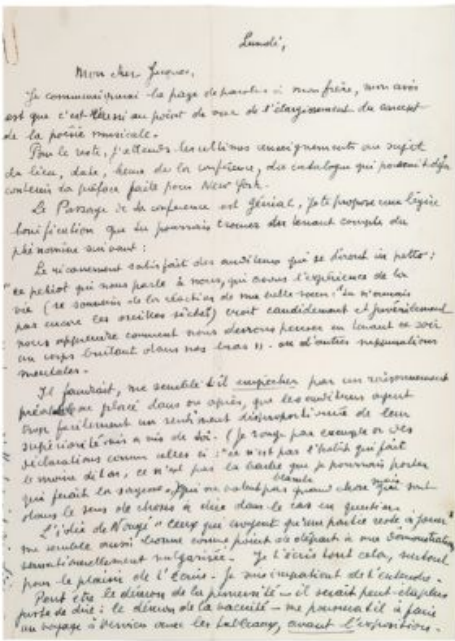 Lundi,
Mon cher Jacques,
Je communiquerai la page de paroles à mon frère, mon avis
est que c'est réussi au point de vue de l'élargissement du concept
de la poésie musicale.
Pour le reste, j'attends les ultimes renseignements au sujet
du lieu, date, heure de la conférence, du catalogue qui
contenir la préface faite pour New York.
Le Passage de la conférence est génial, je te propose une légère
bonification que tu pourrais trouver en tenant compte du
phénomène suivant :
Le ricanement satisfait des auditeurs qui se diront in petto :
"ce petiot qui nous parle à nous, qui avons l'expérience de la
vie (se souvenir de la réaction de ma belle-soeur : "tu n'avais
pas encore les oreilles sèches) croit candidement et juvénilement
nous apprendre comment nous devrons penser en tenant ce soir
un corps brûlant dans nos bras". ou d'autres
mentales.
Il faudrait, me semble t'il empêcher par un raisonnement
préalable placé dans ou après, que les auditeurs aient
trop facilement un sentiment disproportionné de leur
supériorité vis à vis de toi. (Je songe par exemple à des
déclarations comme celles ci : "ce n'est pas l'habit qui fait
le moine dit-on, ce n'est pas la barbe que je pourrais porter
blanche
qui ferait la sagesse", qui ne valent pas grand chose mais qui sont
dans le sens de choses à dire dans le cas en question.
L'idée de Nougé "ceux qui croyent qu'une partie reste à jouer"
me semble aussi bonne comme point de départ à une démonstration
sensationnellement vulgarisée. Je t'écris tout cela, surtout
pour le plaisir de l'écrire. Je suis impatient de t'entendre.
Peut être le démon de la perversité – il serait peut-être plus
juste de dire : le démon de la vacuité – me poussera t'il à faire
un voyage à Verviers avec les tableaux, avant l'exposition.